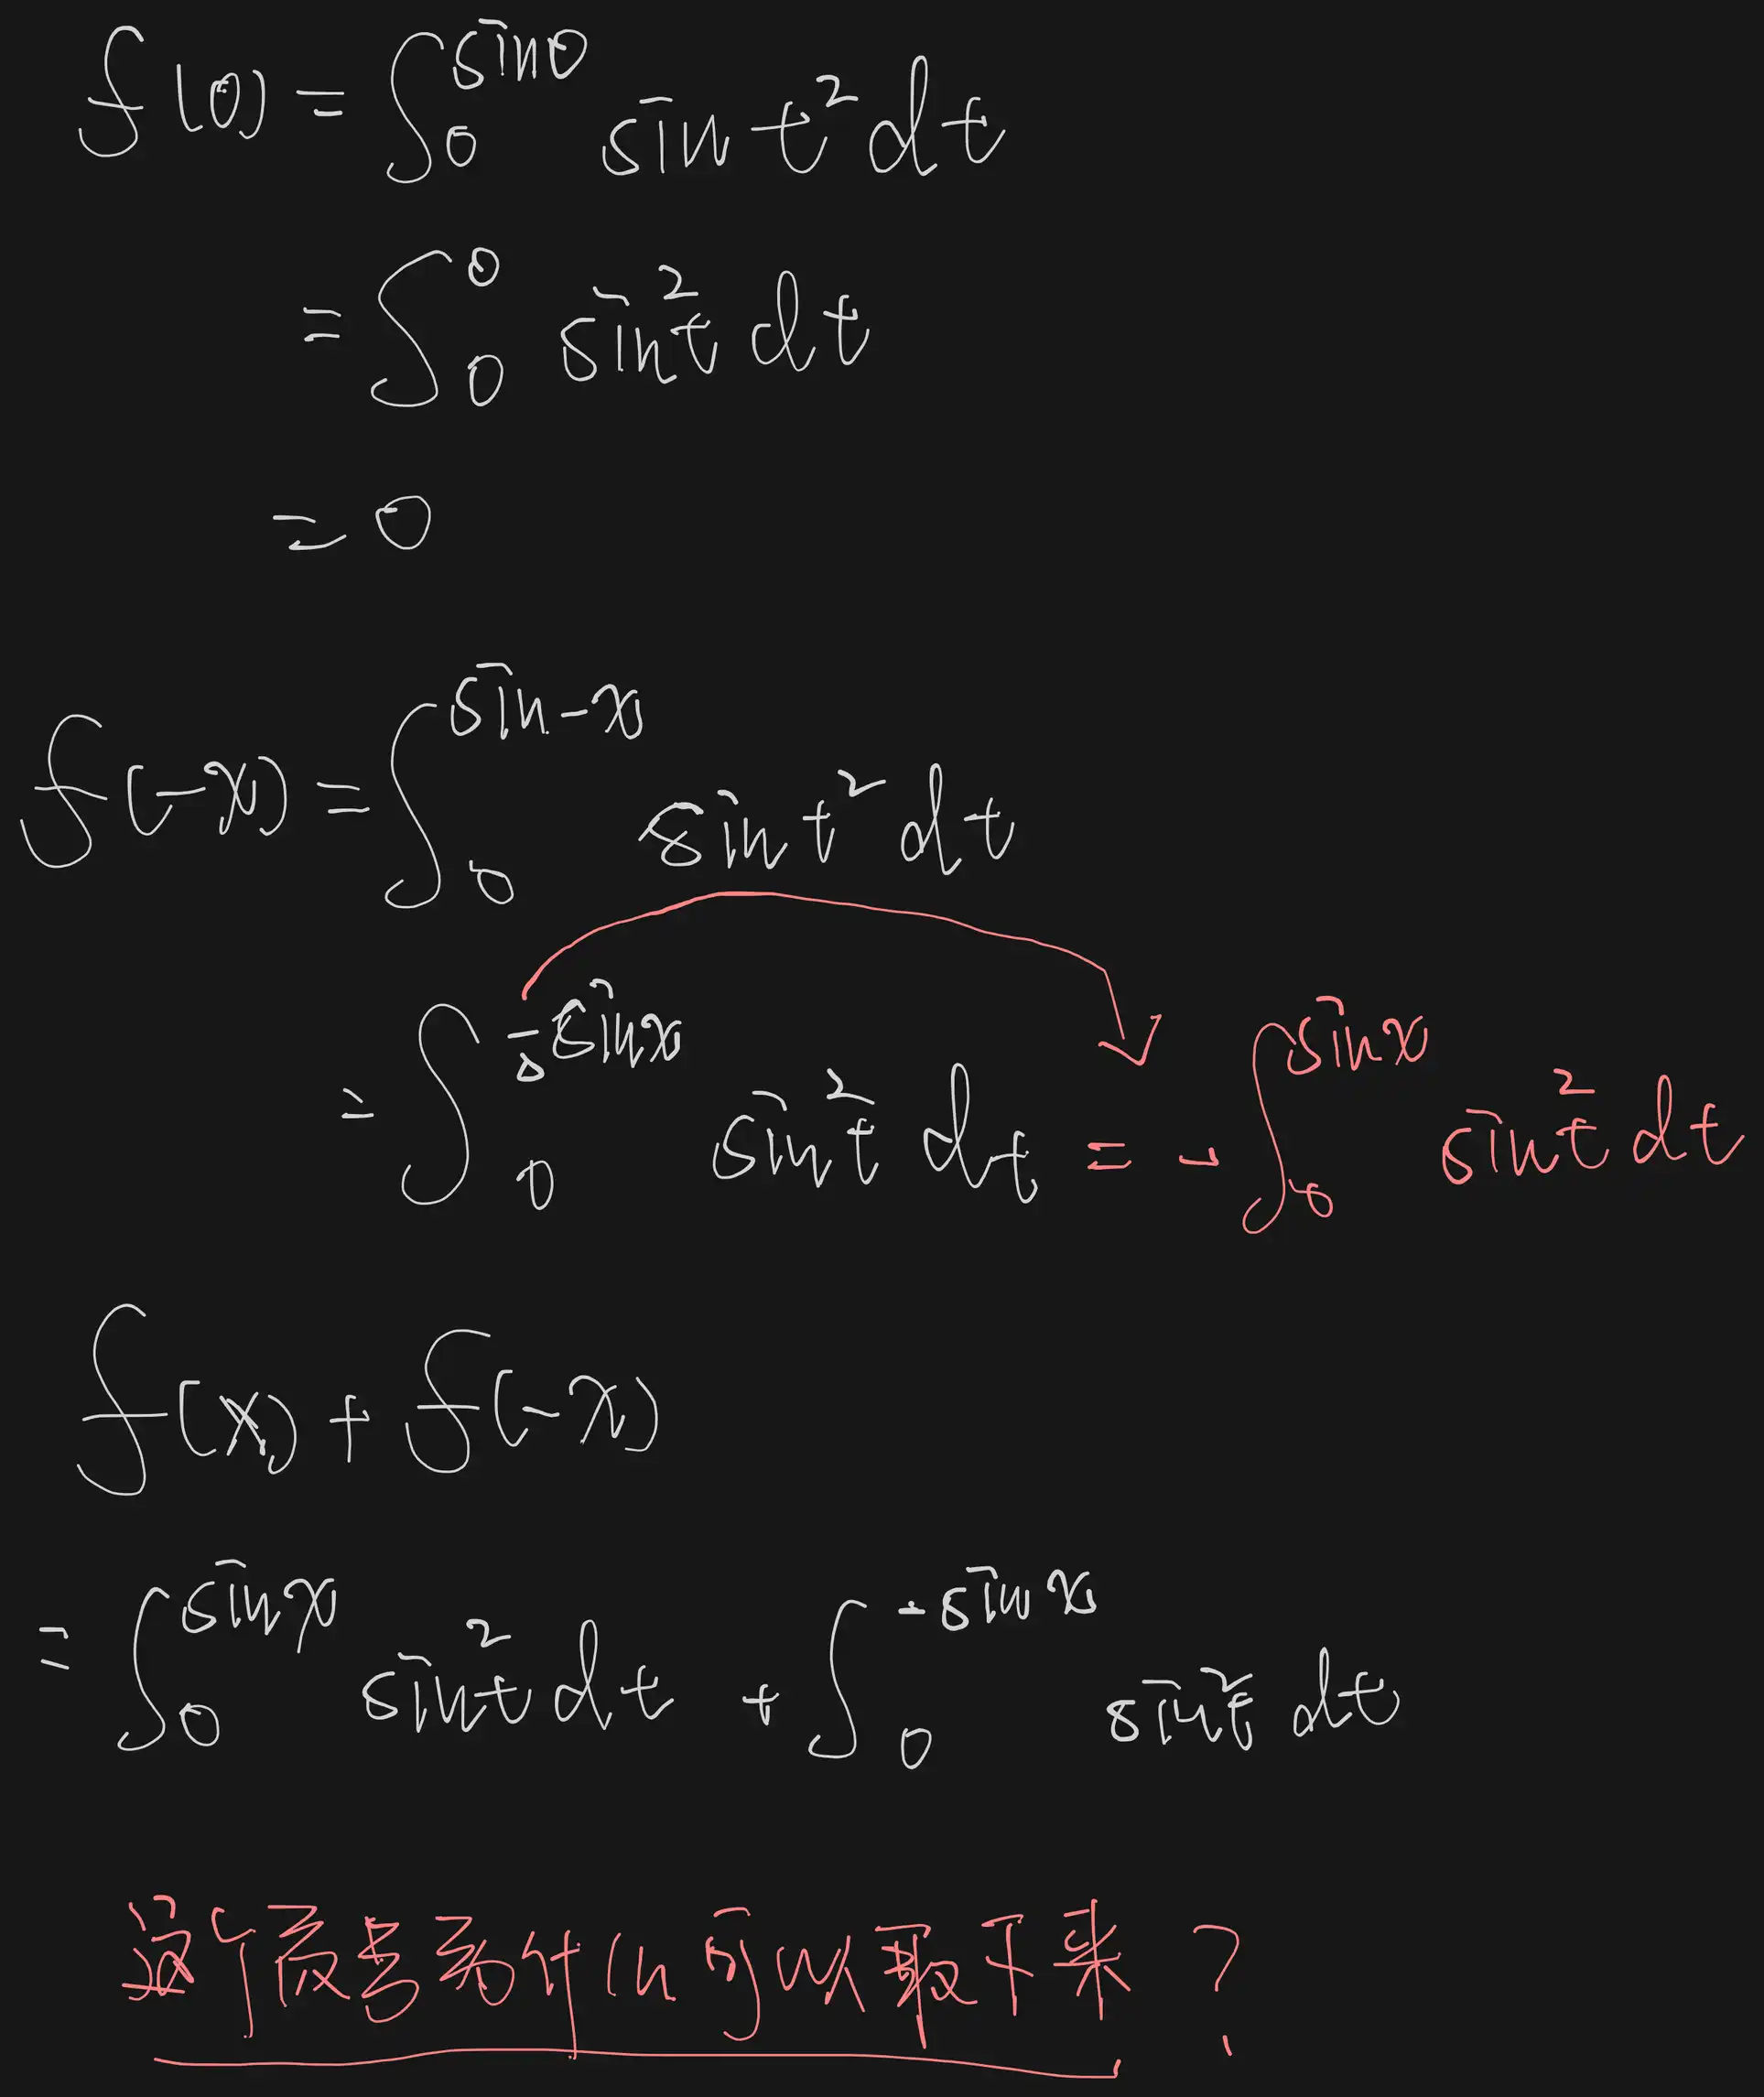 f(0) = ∫₀^{sin0} sin t² dt
= ∫₀^0 sin t² dt
= 0
f(-x) = ∫₀^{sin-x} sin t² dt
= ∫₀^{-sinx} sin t² dt = -∫₀^{sinx} sin t² dt
f(x) + f(-x)
= ∫₀^{sinx} sin t² dt + ∫₀^{-sinx} sin t² dt
这个负号为什么可以拿下来?